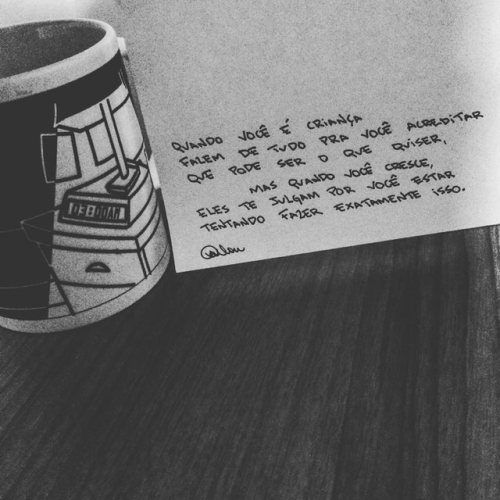 QUANDO VOCÊ É CRIANÇA
FAZEM DE TUDO PRA VOCÊ ACREDITAR
QUE PODE SER O QUE QUISER,
MAS QUANDO VOCÊ CRESCE,
ELES TE JULGAM POR VOCÊ ESTAR
TENTANDO FAZER EXATAMENTE ISSO.